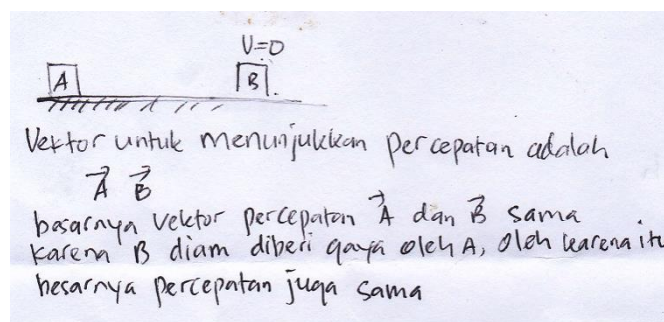 V=0
A B
Vektor untuk menunjukkan percepatan adalah
A⃗ B⃗
basarnya vektor percepatan A⃗ dan B⃗ sama
karena B diam diberi gaya oleh A, oleh karena itu
besarnya percepatan juga sama